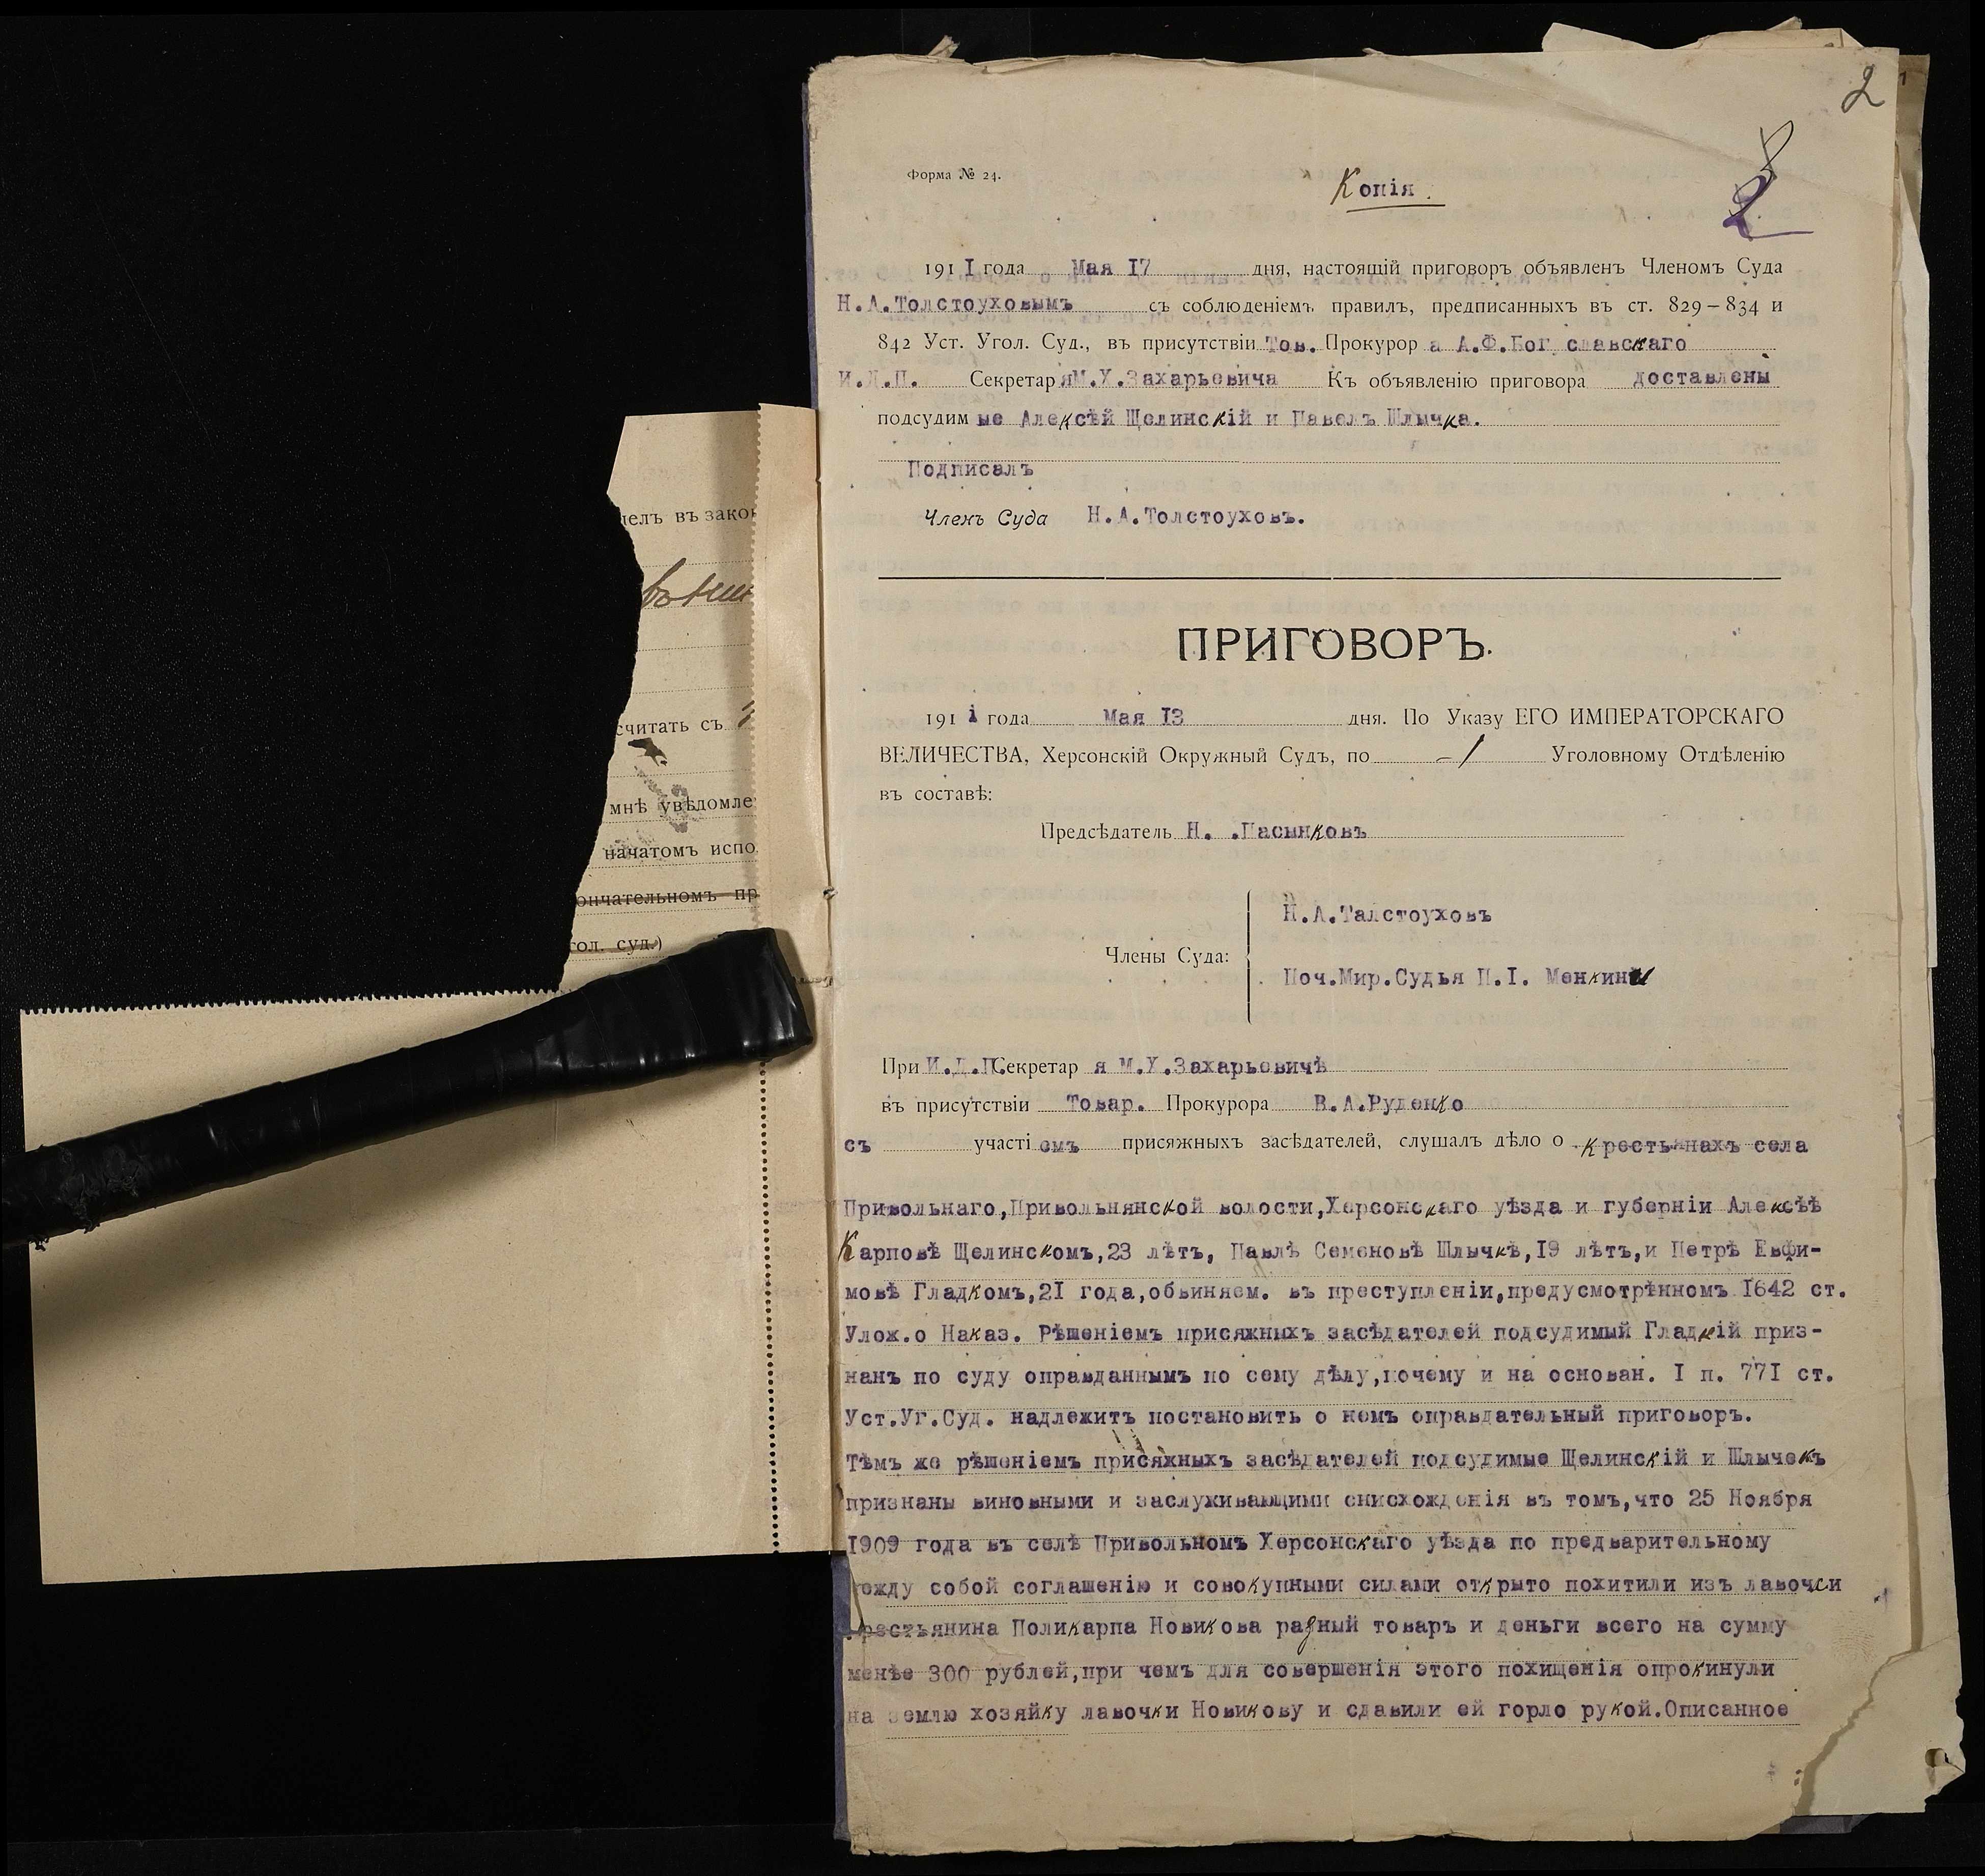 2
Форма № 24.
Копія.
2
1911 года Мая 17 дня, настоящій приговоръ объявленъ Членомъ Суда
Н.А.Толстоуховымъ съ соблюденіемъ правилъ, предписанныхъ въ ст. 829–834 и
842 Уст. Угол. Суд., въ присутствіи Тов. Прокурора А.Ф.Бог славскаго
И.Д.П. Секретаря М.Х.Захарьевича Къ объявленію приговора доставлены
подсудимые Алексѣй Щелинскій и Павелъ Шлычка.
Подписалъ
Членъ Суда Н.А.Толстоуховъ.
ПРИГОВОРЪ.
1911 года Мая 13 дня. По Указу ЕГО ИМПЕРАТОРСКАГО
ВЕЛИЧЕСТВА, Херсонскій Окружный Судъ, по — Уголовному Отдѣленію
въ составѣ:
Предсѣдатель Н. .Пасынковъ
Н.А.Талстоуховъ
Члены Суда:
Поч.Мир.Судья П.І. Менкинъ
При И.Д.П. Секретаря М.Х.Захарьевичѣ
въ присутствіи Товар. Прокурора В.А.Руденко
съ участіемъ присяжныхъ засѣдателей, слушалъ дѣло о крестьянахъ села
Привольнаго,Привольнянской волости,Херсонскаго уѣзда и губерніи Алексѣѣ
Карповѣ Щелинскомъ,23 лѣтъ, Павлѣ Семеновѣ Шлычкѣ,19 лѣтъ,и Петрѣ Евфи-
мовѣ Гладкомъ,21 года,обвиняем. въ преступленіи,предусмотрѣнномъ 1642 ст.
Улож.о Наказ. Рѣшеніемъ присяжныхъ засѣдателей подсудимый Гладкій приз-
нанъ по суду оправданнымъ по сему дѣлу,почему и на основан. I п. 771 ст.
Уст.Уг.Суд. надлежитъ постановить о немъ оправдательный приговоръ.
Тѣмъ же рѣшеніемъ присяжныхъ засѣдателей подсудимые Щелинскій и Шлычекъ
признаны виновными и заслуживающими снисхожденія въ томъ,что 25 Ноября
1909 года въ селѣ Привольномъ Херсонскаго уѣзда по предварительному
между собой соглашенію и совокупными силами открыто похитили изъ лавочки
крестьянина Поликарпа Новикова разный товаръ и деньги всего на сумму
менѣе 300 рублей,при чемъ для совершенія этого похищенія опрокинули
на землю хозяйку лавочки Новикову и сдавили ей горло рукой.Описанное
челъ въ закон
считать съ
мнѣ увѣдомле
начатомъ испо
ончательномъ пр
гол. суд.)